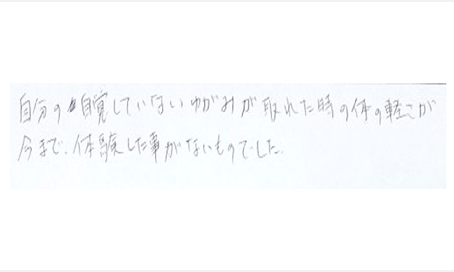 自分の自覚していないゆがみが取れた時の体の軽さが
今まで、体験した事がないものでした。